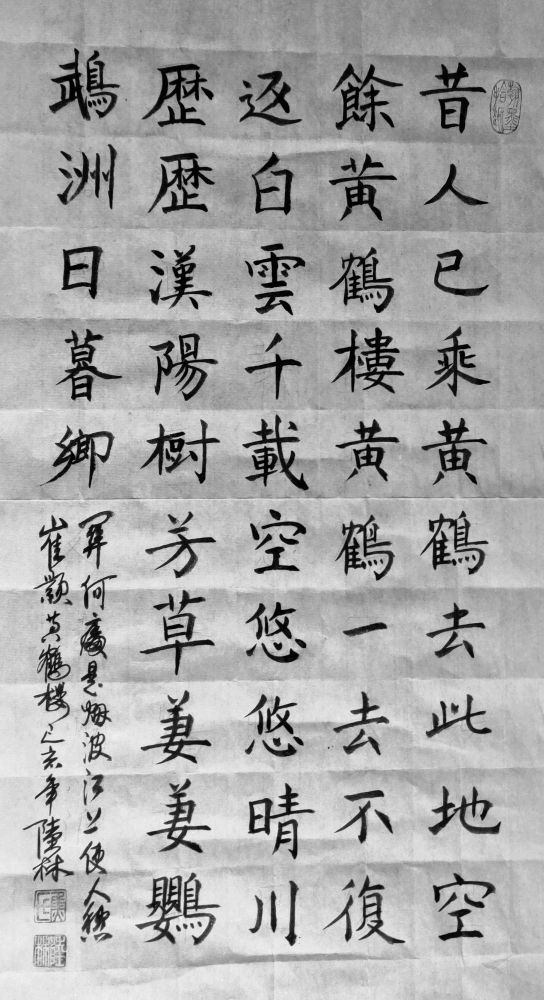 昔人已乘黄鶴去此地空
餘黄鶴樓黄鶴一去不復
返白雲千載空悠悠晴川
歴歴漢陽樹芳草妻妻鸚
鵡洲日暮鄉
關何處是烟波江上使人愁
崔顥黄鶴樓己亥年陸林